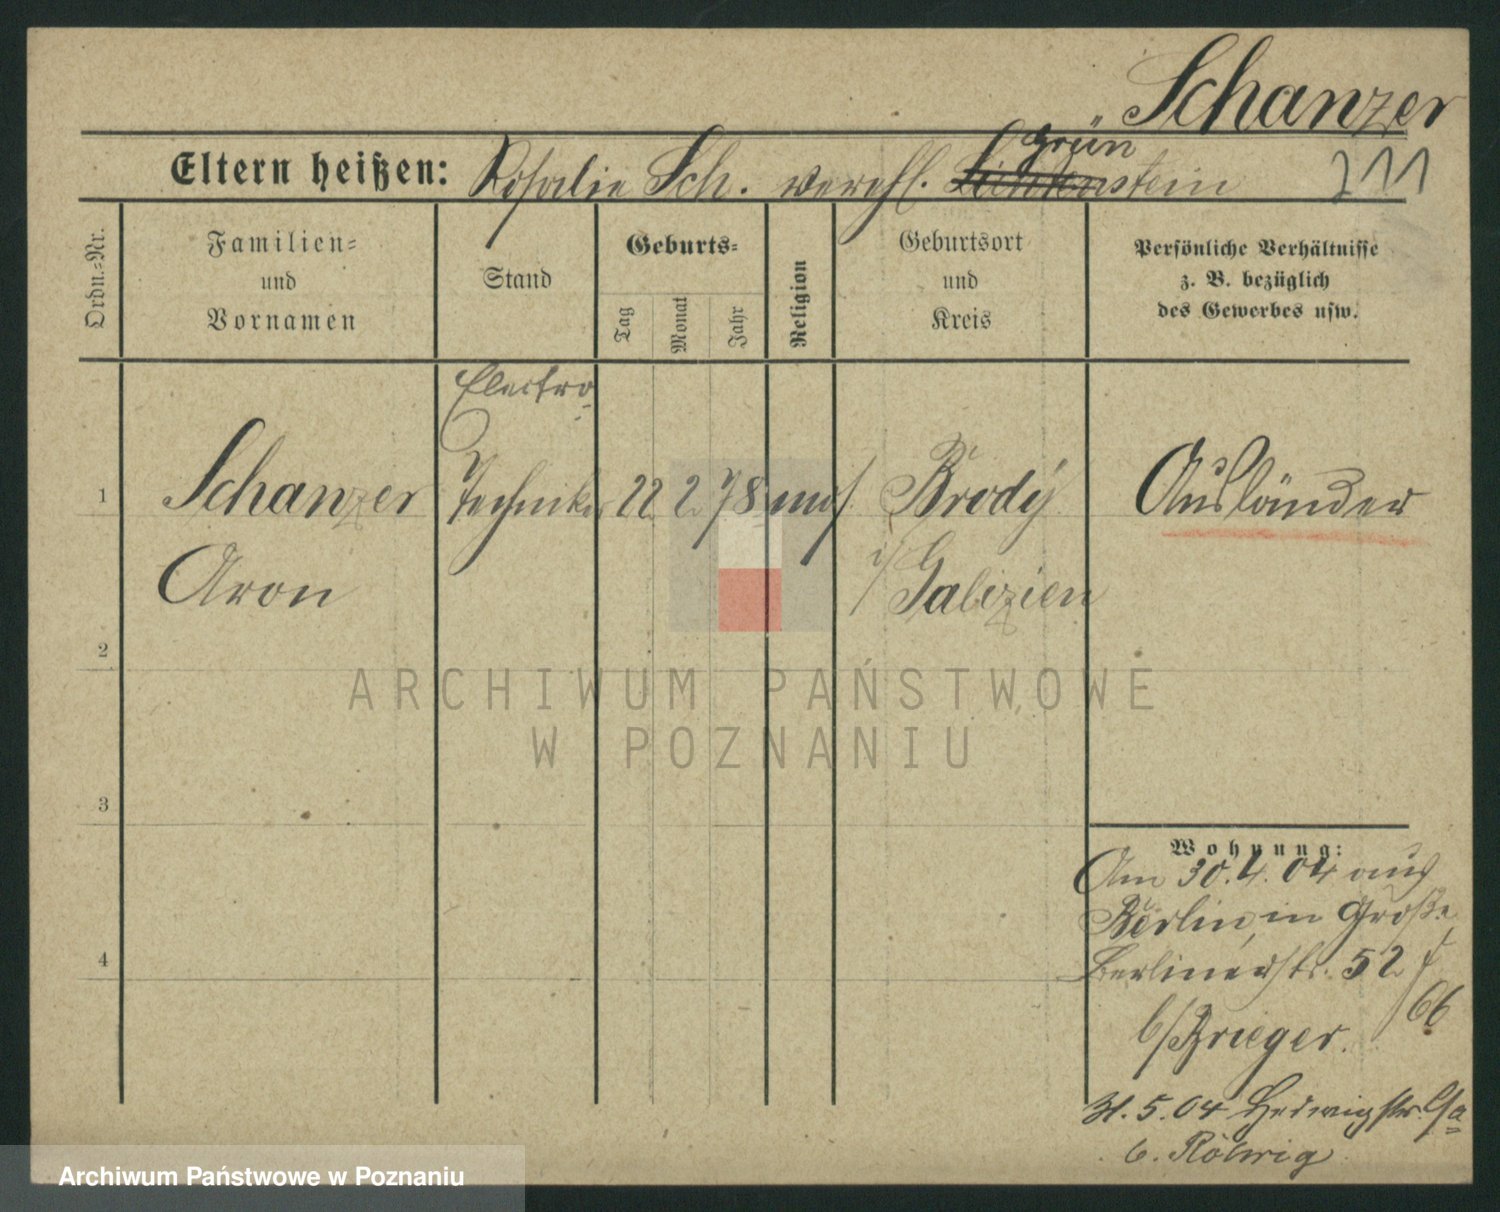 Schanzer
Eltern heißen: Rosalie Sch. verehl. Grün
Lichtenstein
211
Ordn.-Nr.
Familien-
und
Vornamen
Stand
Geburts-
Tag
Monat
Jahr
Religion
Geburtsort
und
Kreis
Persönliche Verhältnisse
z. B. bezüglich
des Gewerbes usw.
Electro-
1 Schanzer Techniker 22 2. 78 mos. Brody Ausländer
Aron i/ Galizien
2
3
4
Wohnung:
Am 30.4.04 aus
Berlin, in Große
Berlinerstr. 52
66
b/Brieger.
31.5.04 Hedwigstr.
b.
ARCHIWUM PAŃSTWOWE
W POZNANIU
Archiwum Państwowe w Poznaniu